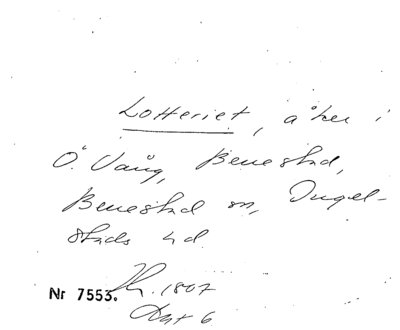 Lotteriet, åker i
Ö. Vång, Benestad,
Benestad sn, Ingel-
stads hd.
Nr 7553. 1807
Akt 6